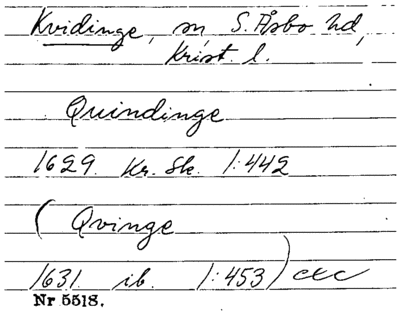 Kvidinge, sn, S. Åsbo hd,
Krist. l.
Quindinge
1629. Kr. Sk. 1:442
( Qvinge
1631 ib. 1:453 ) etc
Nr 5518.